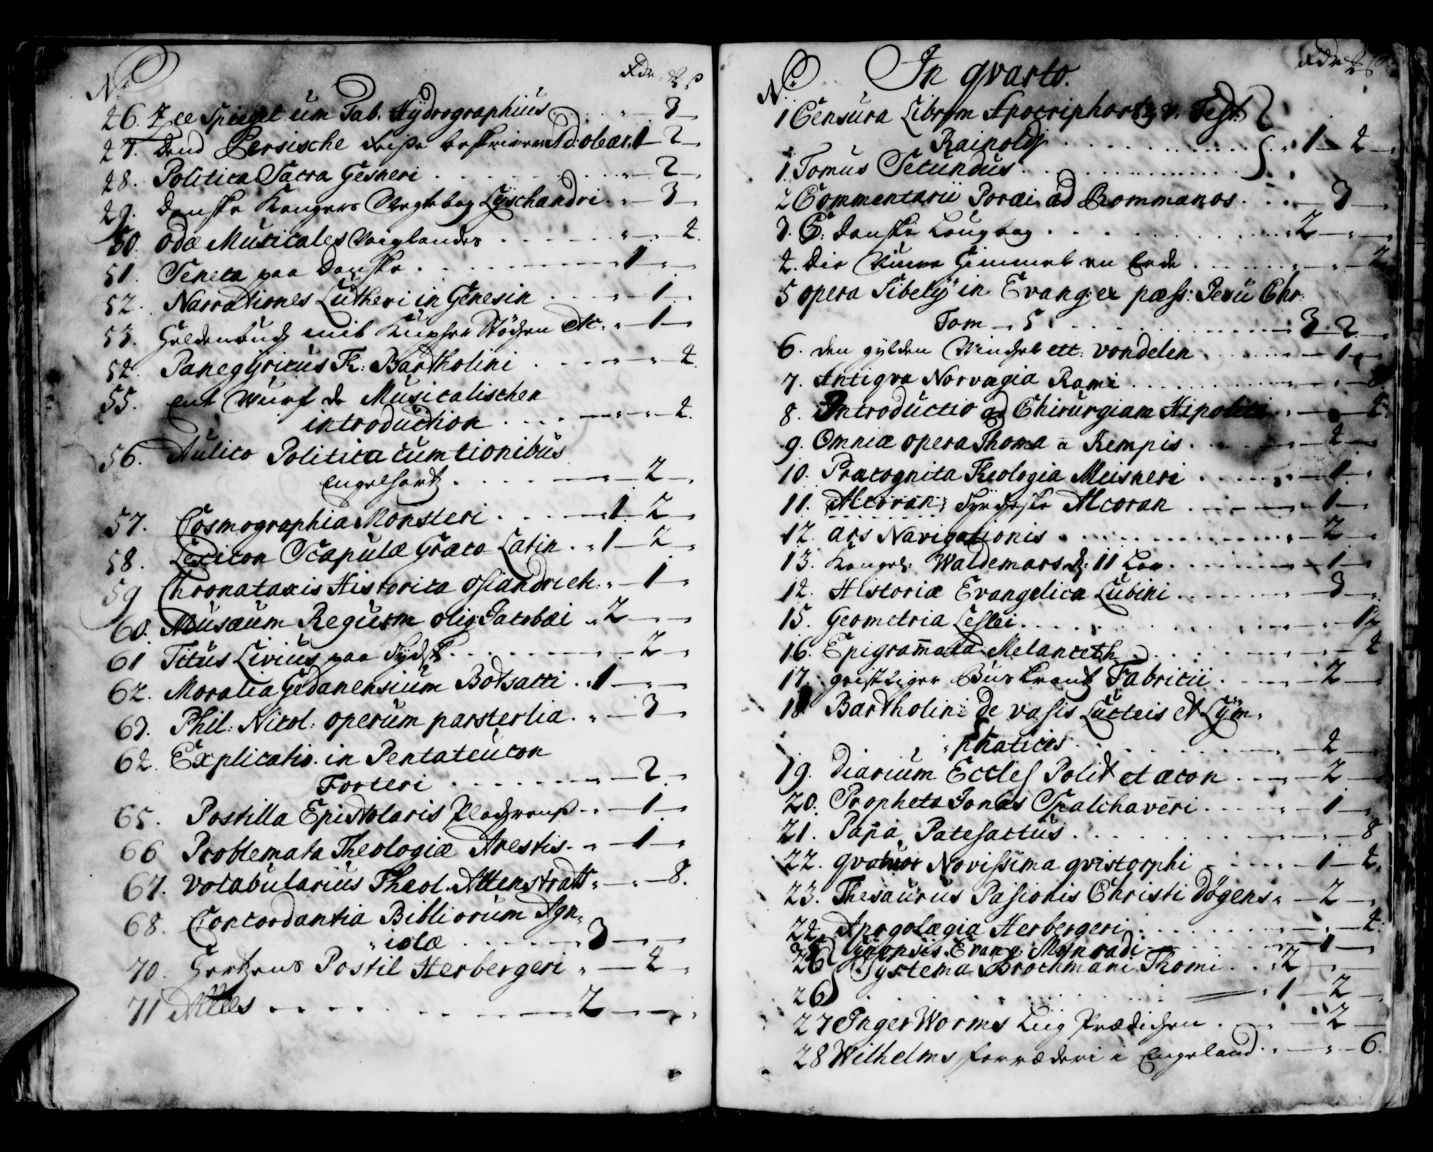 No
26. See Spiegel um Tab. Hydrographius 3
27. Dend Persische Reise beskriven Adolear. 1 2
28. Politica Sacra Gesneri 2
29. Danske Kongers Slegtebog Lyschandri 3
50. Odæ Musicales Voiglander 4
51. Seneca paa Danske 1
52. Narrationes Lutheri in Genesin 1
53. Heldenbuch mit etc. 1
54. Panegyricus Th: Bartholini 4
55. Ent Wurf de Musicalischen
introduction 4
56. Aulico Politica cum tionibus
Engelhart 2
57. Cosmographia Monsteri 1 2
58. Lexicon Scapulæ Græco Latin 1 2
59 Chronataxis Historica osiandrich. 1
60. Musæum Regium olig Jacobæi 2
61 Titus Livius paa Tydsk 2
62. Moralia Gedanensium Botsacci 1
63. Phil. Nicol: operum pars tertia 3
64. Explicatio in Pentateucon
Forteri 2
65. Postilla Epistolaris 1
66 Problemata Theologiæ Arestis 1
67. Vocabularius Theol. Altenstratt 8.
68. Concordantia Bibliorum Agn-
icolæ 3
70. Hertzens Postil Herbergeri 4
71 Atlles 2
No In qvarto.
1 Censura Librom Apocriphor v. Test.
Rainoldj 1 4
1. Tomus Secundus
2 Commentarii Poræi ad Rommanos 3
3. C: 5 danske Lougbog 2
4. Die Himmel en Erde 2
5 opera Sibelij in Evang: ex pass: Jesu Chr.
Tom 5 3 2
6. den gylden Vinckel etc. vondelen 1
7. Antiqva Norvagia Rami 8
8. Introductio ad Chirurgiam Hipolite 4
9. Omnia opera Thoma a Kempis 4
10. Præcognita Theologia Meisneri 1
11. Alcoran: Tyrckeske Alcoran 1
12. ars Navigationis 2
13. Kongl: Waldemars d: 11 Lov 1
14. Historiæ Evangelica Lubini 3
15. Geometria Leslei 12
16. Epigramata Melancth 4
17. geistliger Fabricii 2
18 Bartholin: De vasis Lacteis et Lym-
phaticis 4
19. Diarium Eccles Polit et æcon 2
20. Propheta Jonas Chalchaveri 1
21. Papa Patefactus 8
22. qvatuor Novissima qvistorphi 1 4
23. Thesaurus Passionis Christi Døgens 2
24. Apogolægia Herbergeri 4
Synopsis Evang: Monradi 1
26 Systema Brochmani Thomi 2
26 1 2
27 Inger Worms Liig Prædicken 2
28 Wilhelms forræderi i Engeland 6.